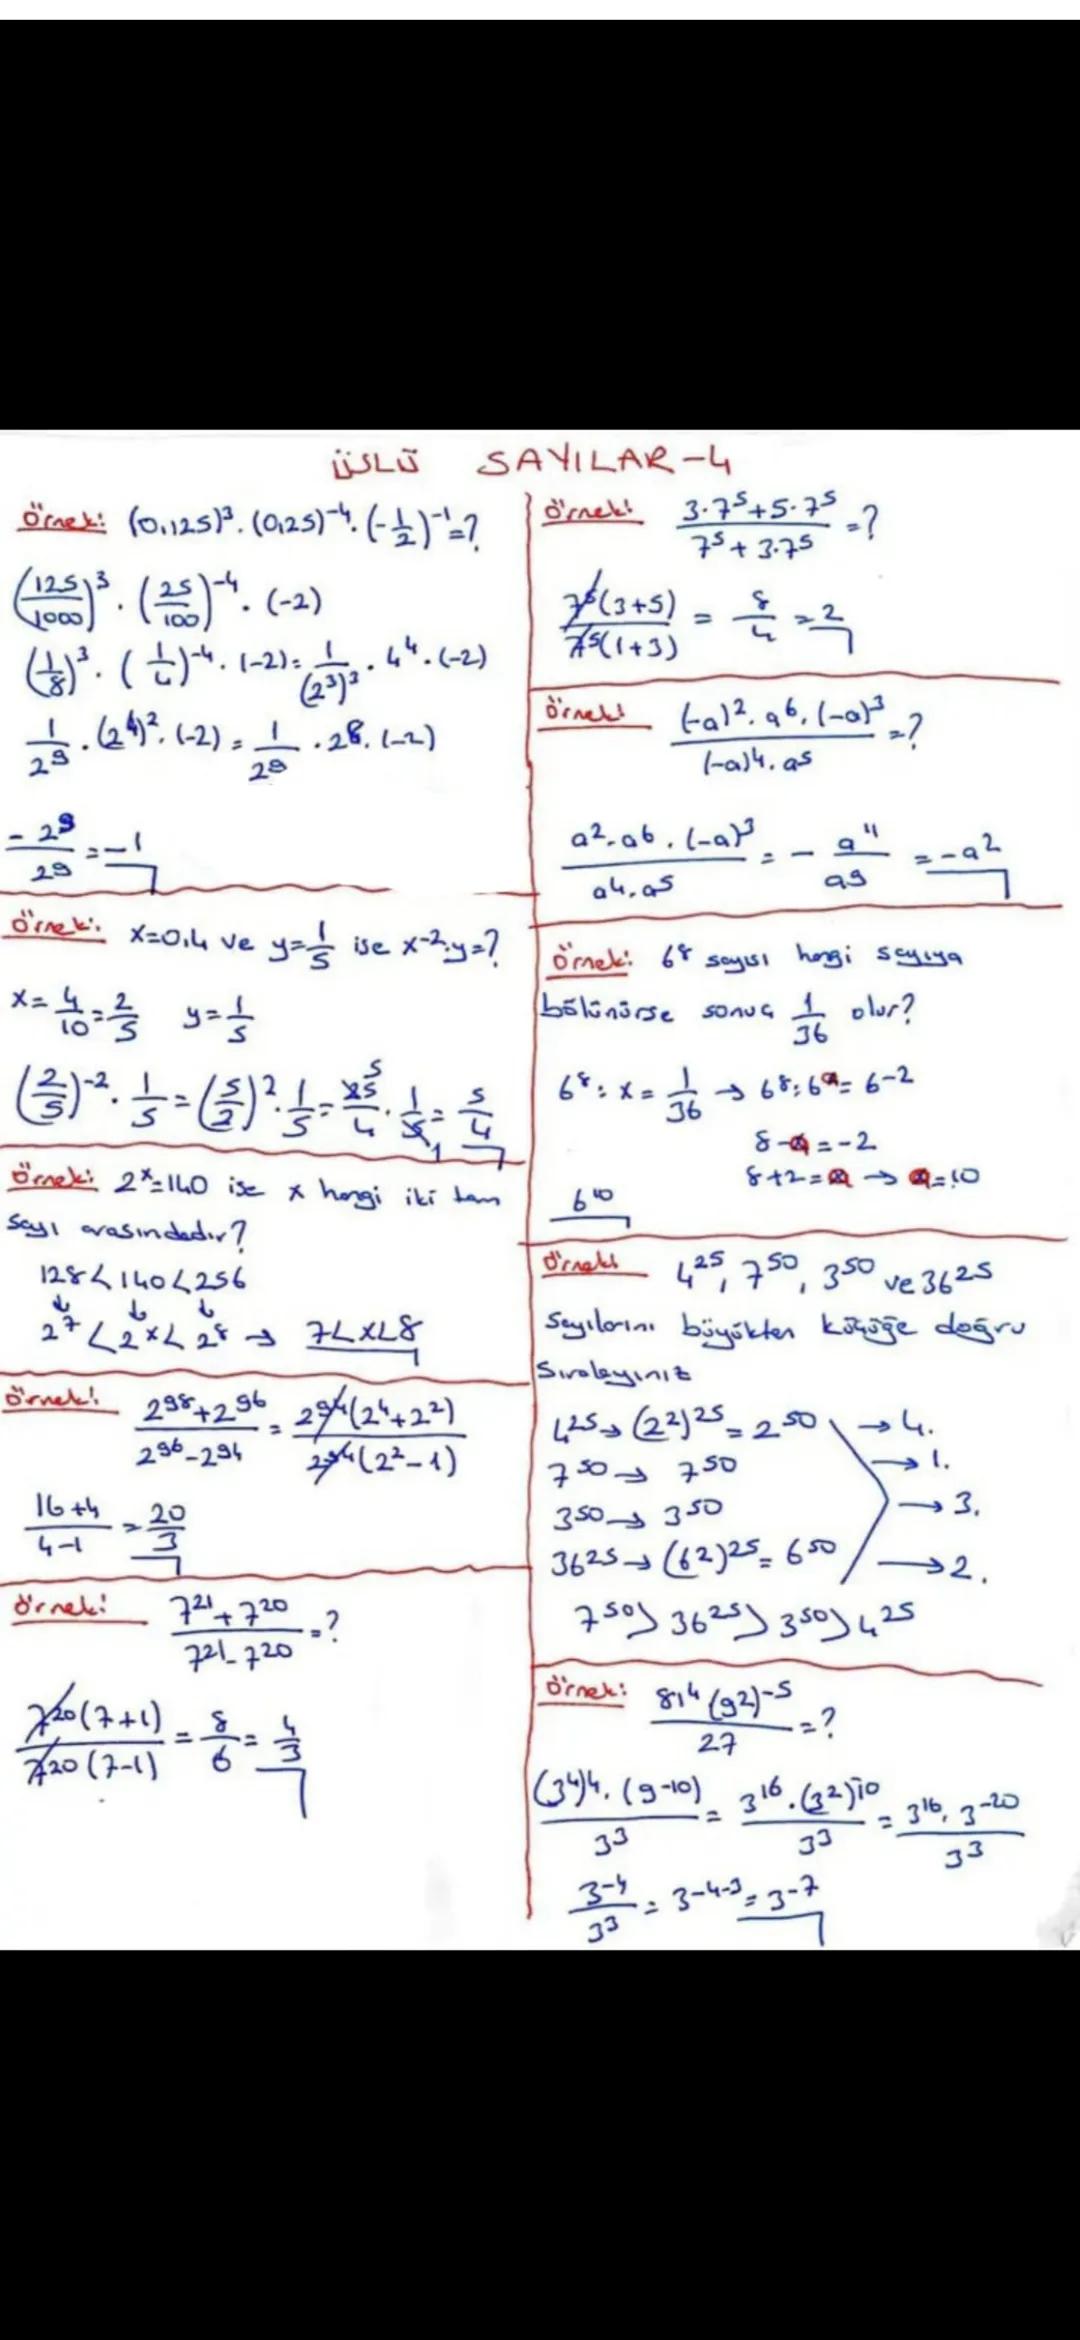 ÜSLÜ SAYILAR-4
Örnek: (0,125)³.(0,25)⁻⁴.(-1/2)⁻¹=?
(125/1000)³.(25/100)⁻⁴.(-2)
(1/8)³.(1/4)⁻⁴.(-2)=1/(2³)³.4⁴.(-2)
1/2⁹.(2⁴)².(-2)=1/2⁹.2⁸.(-2)
-2⁹/2⁹=-1
Örnek: x=0,4 ve y=1/5 ise x⁻².y=?
x=4/10=2/5 y=1/5
(2/5)⁻².1/5=(5/2)².1/5=25/4.1/5=5/4
Örnek: 2ˣ=140 ise x hangi iki tam
sayı arasındadır?
128<140<256
2⁷<2ˣ<2⁸→ 7<x<8
Örnek: 2⁹⁸+2⁹⁶/2⁹⁶-2⁹⁴=2⁹⁴(2⁴+2²)/2⁹⁴(2²-1)
16+4/4-1=20/3
Örnek: 7²¹+7²⁰/7²¹-7²⁰=?
7²⁰(7+1)/7²⁰(7-1)=8/6=4/3
Örnek: 3.7⁵+5.7⁵/7⁵+3.7⁵=?
7⁵(3+5)/7⁵(1+3)=8/4=2
Örnek: (-a)².a⁶.(-a)³/(-a)⁴.a⁵=?
a².a⁶.(-a)³/a⁴.a⁵=-a¹¹/a⁹=-a²
Örnek: 6⁸ sayısı hangi sayıya
bölünürse sonuç 1/36 olur?
6⁸:x=1/36→6⁸:6ᵃ=6⁻²
8-a=-2
8+2=a→a=10
6¹⁰
Örnek: 4²⁵, 7⁵⁰, 3⁵⁰ ve 36²⁵
sayılarını büyükten küçüğe doğru
sıralayınız
4²⁵→(2²)²⁵=2⁵⁰ →4.
7⁵⁰→7⁵⁰ →1.
3⁵⁰→3⁵⁰ →3.
36²⁵→(6²)²⁵=6⁵⁰ →2.
7⁵⁰>36²⁵>3⁵⁰>4²⁵
Örnek: 81⁴(9²)⁻⁵/27=?
(3⁴)⁴.(9⁻¹⁰)/3³=3¹⁶.(3²)⁻¹⁰/3³=3¹⁶.3⁻²⁰/3³
3⁻⁴/3³=3⁻⁴⁻³=3⁻⁷